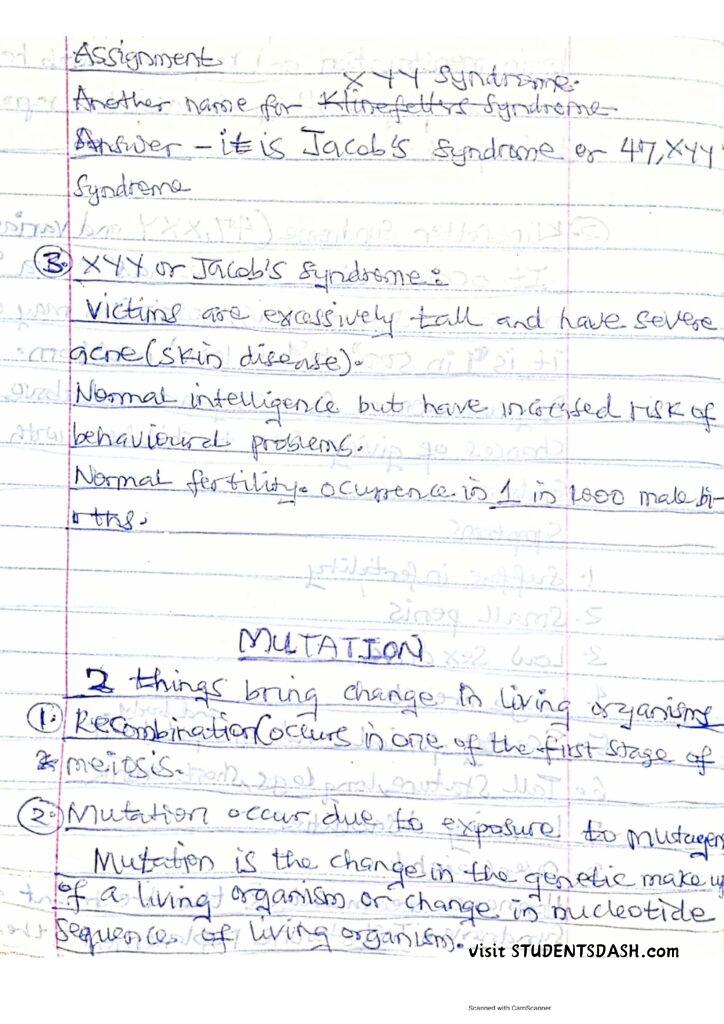 Assignment
XYY Syndrome.
Another name for Klinefelters Syndrome
Answer - it is Jacob's Syndrome or 47,XYY
Syndrome
3. XYY or Jacob's Syndrome:
Victims are excessively tall and have severe
acne (skin disease).
Normal intelligence but have incresed risk of
behavioural problems.
Normal fertility. ocurrence in 1 in 1000 male bi-
rths.
MUTATION
2 things bring change in living organisms
1. Recombination (occurs in one of the first stage of
meiosis.
2. Mutation occur due to exposure to mutagen
Mutation is the change in the genetic make up
of a living organism or change in nucleotide
sequence of living organism.
visit STUDENTSDASH.com
Scanned with CamScanner